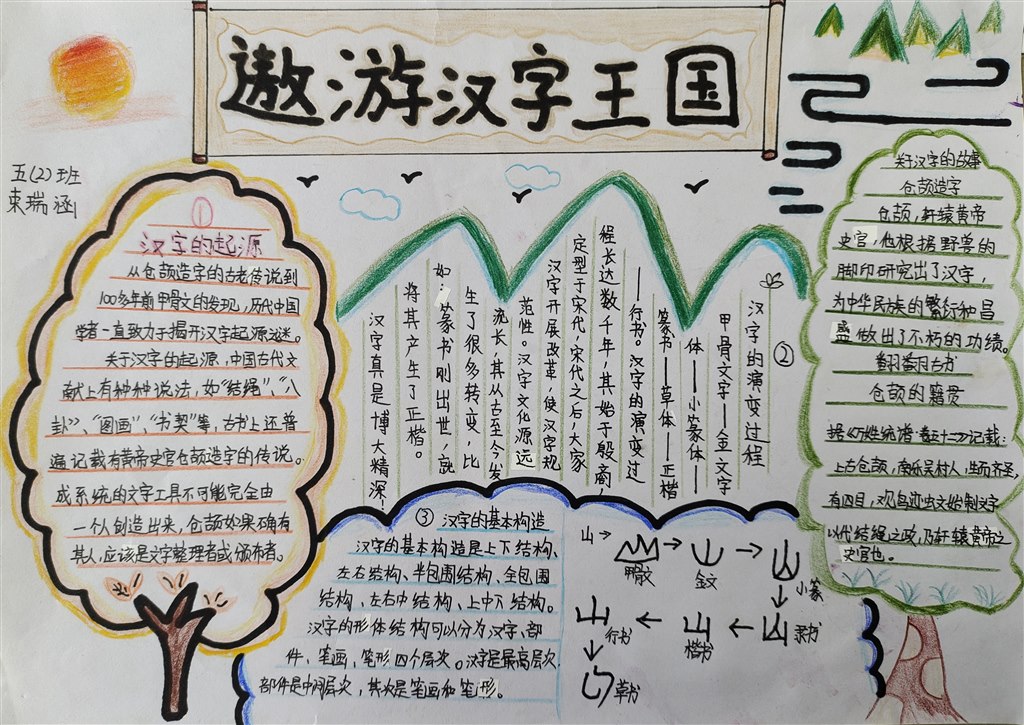 遨游汉字王国
五(2)班
束瑞涵
①
汉字的起源
从仓颉造字的古老传说到
100多年前甲骨文的发现，历代中国
学者一直致力于揭开汉字起源之谜。
关于汉字的起源，中国古代文
献上有种种说法，如“结绳”、“八
卦”、“图画”、“书契”等，古书上还普
遍记载有黄帝史官仓颉造字的传说。
成系统的文字工具不可能完全由
一个人创造出来，仓颉如果确有
其人，应该是文字整理者或颁布者。
②
汉字的演变过程
甲骨文字——金文字
体——小篆体——
篆书——草体——正楷
——行书。汉字的演变过
程长达数千年，其始于殷商，
定型于宋代，宋代之后，大家
汉字开展改革，使汉字规
范性。汉字文化源远
流长，其从古至今发
生了很多转变，比
如：篆书刚出世，就
将其产生了正楷。
汉字真是博大精深！
③ 汉字的基本构造
汉字的基本构造是上下结构、
左右结构、半包围结构、全包围
结构、左右中结构、上中下结构。
汉字的形体结构可以分为汉字、部
件、笔画、笔形四个层次。汉字是最高层次
部件是中间层次，其次是笔画和笔形。
山→
→
→
甲骨文
金文
小篆
↓
山 ← 山 ←
行书
楷书
隶书
↓
草书
关于汉字的故事
仓颉造字
仓颉，轩辕黄帝
史官，他根据野兽的
脚印研究出了汉字，
为中华民族的繁衍和昌
盛做出了不朽的功绩。
翻翻古书
仓颉的籍贯
据《万姓统谱·卷五十二》记载：
上古仓颉，南乐吴村人，生而齐圣，
有四目，观鸟迹虫文始制文字
以代结绳之政，乃轩辕黄帝之
史官也。